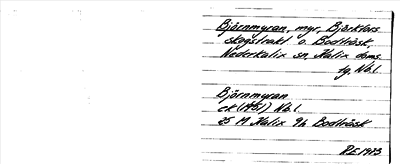 Björnmyran, myr, Björkfors
skogstrakt o. Bodträsk,
Nederkalix sn, Kalix doms.
tg, Nb.l.
Björnmyran
ek (1951) Nb.l.
25 M Kalix 9h Bodträsk
RE 1973